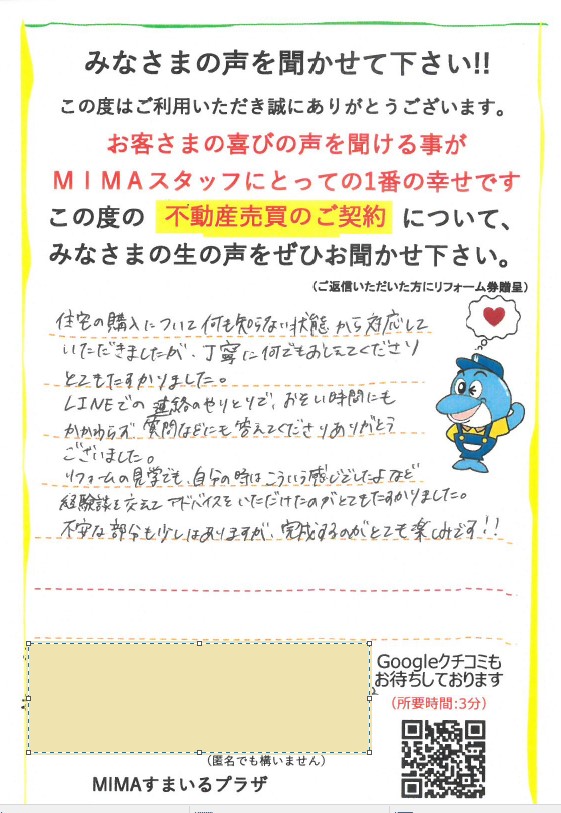 みなさまの声を聞かせて下さい!!
この度はご利用いただき誠にありがとうございます。
お客さまの喜びの声を聞ける事が
MIMAスタッフにとっての1番の幸せです
この度の 不動産売買のご契約 について、
みなさまの生の声をぜひお聞かせ下さい。
(ご返信いただいた方にリフォーム券贈呈)
住宅の購入について何も知らない状態から対応して
いただきましたが、丁寧に何でもおしえてくださり
とてもたすかりました。
LINEでの連絡のやりとりで、おそい時間にも
かかわらず、質問などにも答えてくださりありがとう
ございました。
リフォームの見学でも、自分の時はこういう感じでしたよなど
経験談を交えてアドバイスをいただけたのがとてもたすかりました。
不安な部分も少しはありますが、完成するのがとても楽しみです!!
Googleクチコミも
お待ちしております
(所要時間:3分)
(匿名でも構いません)
MIMAすまいるプラザ